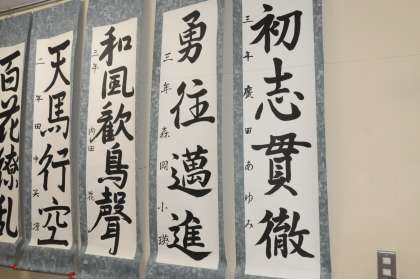 初志貫徹
三年 廣田あゆみ
勇往邁進
三年 森岡小瑛
和風歓鳥聲
三年 内田 花
天馬行空
二年 田中天淳
百花繚乱